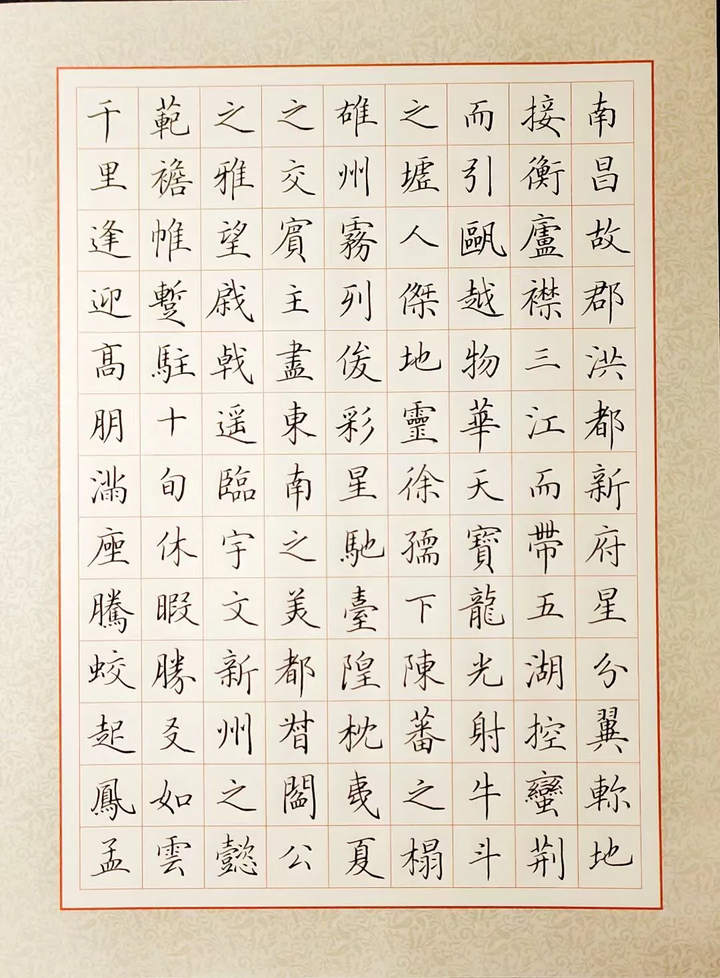 南昌故郡洪都新府星分翼軫地
接衡廬襟三江而帶五湖控蠻荆
而引甌越物華天寶龍光射牛斗
之墟人傑地靈徐孺下陳蕃之榻
雄州霧列俊彩星馳臺隍枕夷夏
之交賓主盡東南之美都督閻公
之雅望棨戟遥臨宇文新州之懿
範襜帷蹔駐十旬休暇勝友如雲
千里逢迎髙朋滿座騰蛟起鳳孟